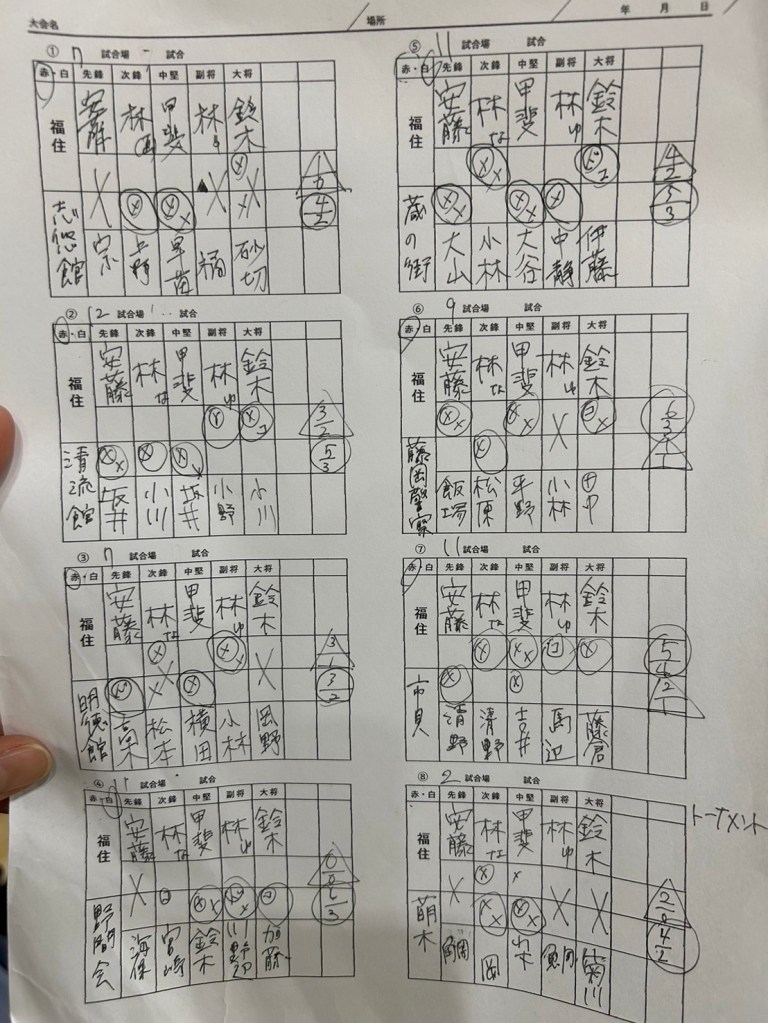 大会名 場所 年 月 日
① 7 試合場 試合
赤・白 先鋒 次鋒 中堅 副将 大将
福住 安藤 林 甲斐 林ゆ 鈴木
1/0
4/2
志悠館 宗 早苗 砂切
② 12 試合場 1 試合
赤・白 先鋒 次鋒 中堅 副将 大将
福住 安藤 林な 甲斐 林ゆ 鈴木
3/2
5/3
清流館 坂井 小川 坂井 小野 小川
③ 7 試合場 試合
赤・白 先鋒 次鋒 中堅 副将 大将
福住 安藤 林な 甲斐 林ゆ 鈴木
3/1
3/2
明徳館 高木 松本 横田 小林 岡野
④ 11 試合場 試合
赤・白 先鋒 次鋒 中堅 副将 大将
福住 安藤 林な 甲斐 林ゆ 鈴木
0/0
6/3
野間会 海保 宮崎 鈴木 加藤
⑤ 11 試合場 試合
赤・白 先鋒 次鋒 中堅 副将 大将
福住 安藤 林な 甲斐 林ゆ 鈴木
4/2
5/3
蔵の街 大山 小林 大谷 中静 伊藤
⑥ 9 試合場 試合
赤・白 先鋒 次鋒 中堅 副将 大将
福住 安藤 林な 甲斐 林ゆ 鈴木
6/3
1/1
藤岡警察 飯塚 松原 平野 小林 田中
⑦ 11 試合場 試合
赤・白 先鋒 次鋒 中堅 副将 大将
福住 安藤 林な 甲斐 林ゆ 鈴木
5/4
2/1
市貝 清野 清野 吉井 馬込 藤倉
⑧ 2 試合場 試合
赤・白 先鋒 次鋒 中堅 副将 大将
トーナメント
福住 安藤 林な 甲斐 林ゆ 鈴木
2/0
4/2
萌木 鯛 岡